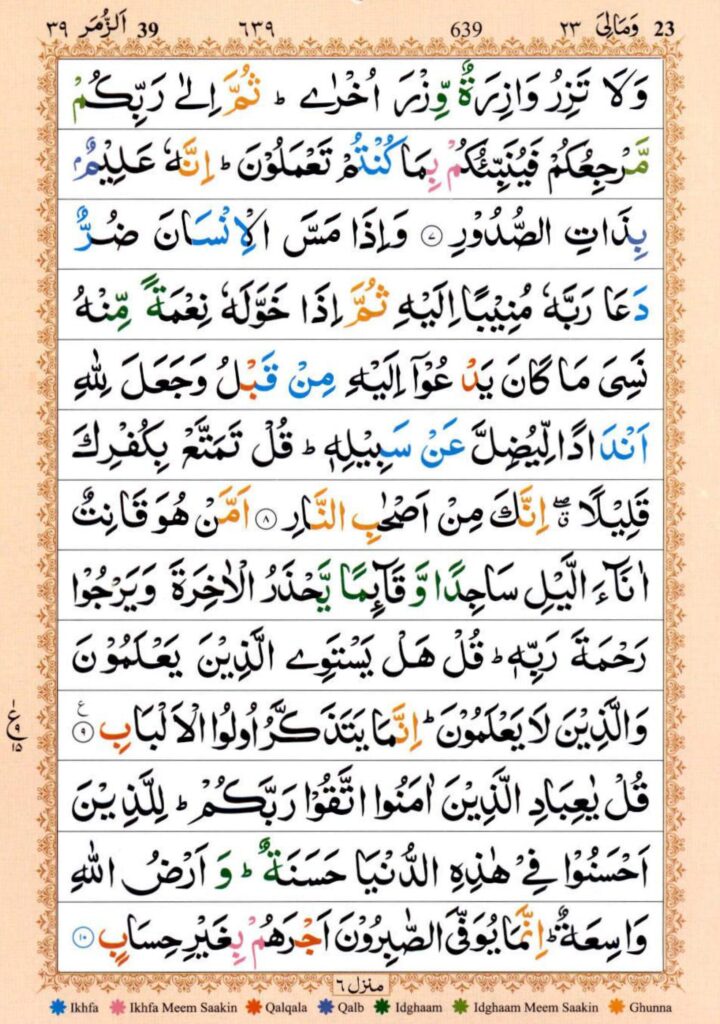 اَلزُّمَر ٣٩ 39 ٦٣٩ 639 وَمَالِىَ ٢٣ 23
وَلَا تَزِرُ وَازِرَةٌ وِّزْرَ اُخْرٰىؕ ثُمَّ اِلٰى رَبِّكُمْ
مَّرْجِعُكُمْ فَيُنَبِّئُكُمْ بِمَا كُنْتُمْ تَعْمَلُوْنَؕ اِنَّهٗ عَلِيْمٌۢ
بِذَاتِ الصُّدُوْرِ ۝٧ وَاِذَا مَسَّ الْاِنْسَانَ ضُرٌّ
دَعَا رَبَّهٗ مُنِيْبًا اِلَيْهِ ثُمَّ اِذَا خَوَّلَهٗ نِعْمَةً مِّنْهُ
نَسِىَ مَا كَانَ يَدْعُوْۤا اِلَيْهِ مِنْ قَبْلُ وَجَعَلَ لِلّٰهِ
اَنْدَادًا لِّيُضِلَّ عَنْ سَبِيْلِهٖؕ قُلْ تَمَتَّعْ بِكُفْرِكَ
قَلِيْلًا ۖۗ اِنَّكَ مِنْ اَصْحٰبِ النَّارِ ۝٨ اَمَّنْ هُوَ قَانِتٌ
اٰنَآءَ الَّيْلِ سَاجِدًا وَّ قَآئِمًا يَّحْذَرُ الْاٰخِرَةَ وَيَرْجُوْا
رَحْمَةَ رَبِّهٖؕ قُلْ هَلْ يَسْتَوِى الَّذِيْنَ يَعْلَمُوْنَ
وَالَّذِيْنَ لَا يَعْلَمُوْنَؕ اِنَّمَا يَتَذَكَّرُ اُولُوا الْاَلْبَابِ ۝٩ ع
ع ١ ٩ ١٥
قُلْ يٰعِبَادِ الَّذِيْنَ اٰمَنُوا اتَّقُوْا رَبَّكُمْؕ لِلَّذِيْنَ
اَحْسَنُوْا فِىْ هٰذِهِ الدُّنْيَا حَسَنَةٌؕ وَ اَرْضُ اللّٰهِ
وَاسِعَةٌؕ اِنَّمَا يُوَفَّى الصّٰبِرُوْنَ اَجْرَهُمْ بِغَيْرِ حِسَابٍ ۝١٠
منزل ٦
Ikhfa Ikhfa Meem Saakin Qalqala Qalb Idghaam Idghaam Meem Saakin Ghunna